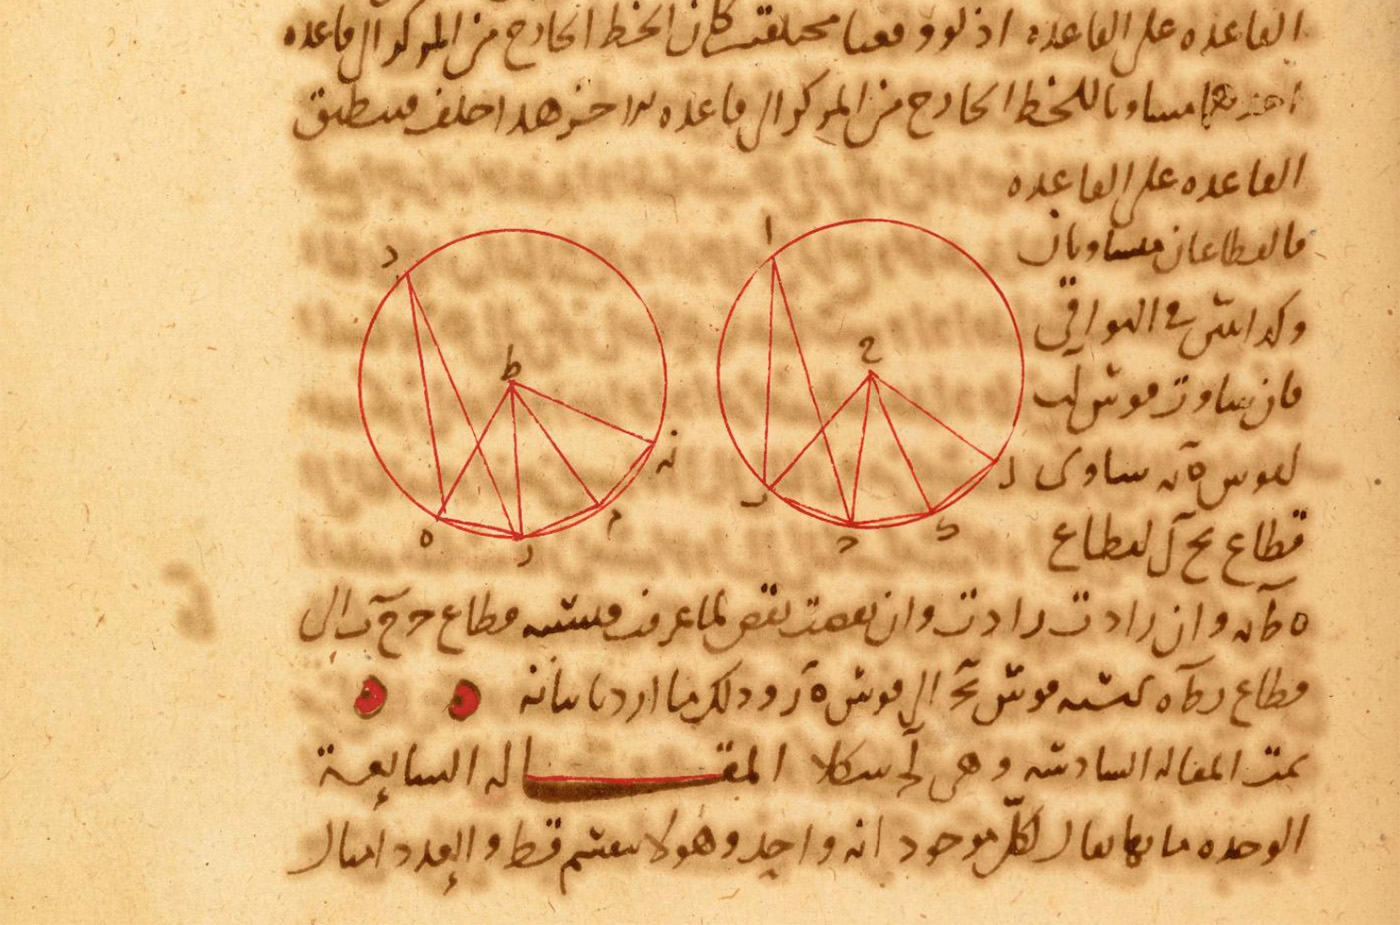 القاعده على القاعده اذ لو وقعتا مختلفتين كان الخط الخارج من المركز الى قاعده
احديهما مساويا للخط الخارج من المركز الى قاعده هذا خلف فينطبق
القاعده على القاعده
فالقطاعان متساويان
وكذا فى البواقي
فان ساوت قوس لب
لقوس ه نه ساوى
قطاع بح ل لقطاع
ه ط نه وان زادت زادت وان نقصت نقص لما عرفت فنسبه قطاع الى
قطاع كنسبه قوس بج الى قوس ه ز وذلك ما اردنا بيانه
تمت المقاله السادسه وهى لح شكلا المقاله السابعة
الوحده ما بها يقال لكل موجود انه واحد وهو لا ينقسم قط والعدد
ا
ح
ب
ج
ك
ل
د
ط
ه
ز
م
نه